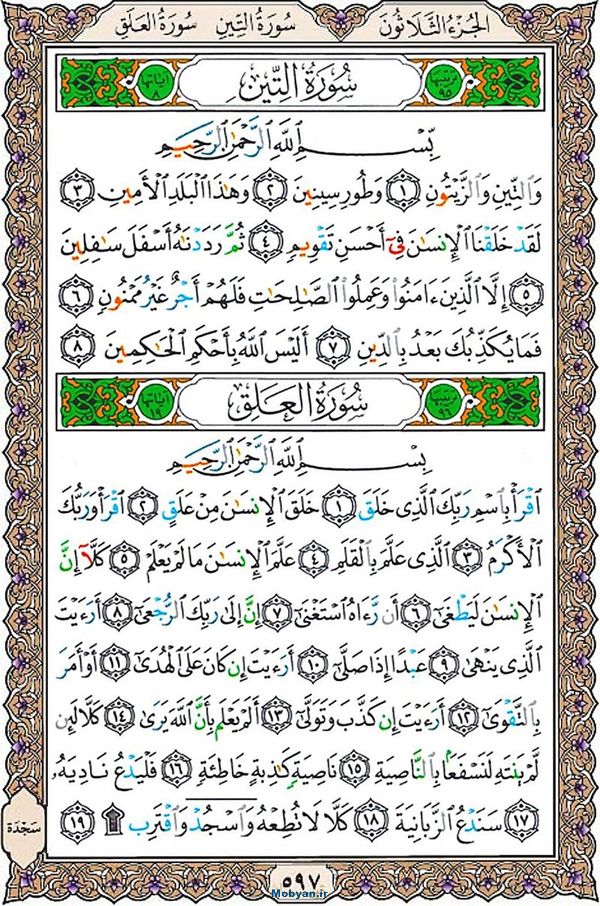 الجُزءُ الثَّلَاثُونَ سُورَةُ التِّينِ سُورَةُ العَلَقِ
ترتيبها ٩٥ سُورَةُ التِّينِ آياتها ٨
بِسْمِ ٱللَّهِ ٱلرَّحْمَٰنِ ٱلرَّحِيمِ
وَٱلتِّينِ وَٱلزَّيْتُونِ ﴿١﴾ وَطُورِ سِينِينَ ﴿٢﴾ وَهَٰذَا ٱلْبَلَدِ ٱلْأَمِينِ ﴿٣﴾
لَقَدْ خَلَقْنَا ٱلْإِنسَٰنَ فِىٓ أَحْسَنِ تَقْوِيمٍ ﴿٤﴾ ثُمَّ رَدَدْنَٰهُ أَسْفَلَ سَٰفِلِينَ
﴿٥﴾ إِلَّا ٱلَّذِينَ ءَامَنُوا۟ وَعَمِلُوا۟ ٱلصَّٰلِحَٰتِ فَلَهُمْ أَجْرٌ غَيْرُ مَمْنُونٍ ﴿٦﴾
فَمَا يُكَذِّبُكَ بَعْدُ بِٱلدِّينِ ﴿٧﴾ أَلَيْسَ ٱللَّهُ بِأَحْكَمِ ٱلْحَٰكِمِينَ ﴿٨﴾
ترتيبها ٩٦ سُورَةُ العَلَقِ آياتها ١٩
بِسْمِ ٱللَّهِ ٱلرَّحْمَٰنِ ٱلرَّحِيمِ
ٱقْرَأْ بِٱسْمِ رَبِّكَ ٱلَّذِى خَلَقَ ﴿١﴾ خَلَقَ ٱلْإِنسَٰنَ مِنْ عَلَقٍ ﴿٢﴾ ٱقْرَأْ وَرَبُّكَ
ٱلْأَكْرَمُ ﴿٣﴾ ٱلَّذِى عَلَّمَ بِٱلْقَلَمِ ﴿٤﴾ عَلَّمَ ٱلْإِنسَٰنَ مَا لَمْ يَعْلَمْ ﴿٥﴾ كَلَّآ إِنَّ
ٱلْإِنسَٰنَ لَيَطْغَىٰٓ ﴿٦﴾ أَن رَّءَاهُ ٱسْتَغْنَىٰٓ ﴿٧﴾ إِنَّ إِلَىٰ رَبِّكَ ٱلرُّجْعَىٰٓ ﴿٨﴾ أَرَءَيْتَ
ٱلَّذِى يَنْهَىٰ ﴿٩﴾ عَبْدًا إِذَا صَلَّىٰٓ ﴿١٠﴾ أَرَءَيْتَ إِن كَانَ عَلَى ٱلْهُدَىٰٓ ﴿١١﴾ أَوْ أَمَرَ
بِٱلتَّقْوَىٰٓ ﴿١٢﴾ أَرَءَيْتَ إِن كَذَّبَ وَتَوَلَّىٰٓ ﴿١٣﴾ أَلَمْ يَعْلَم بِأَنَّ ٱللَّهَ يَرَىٰ ﴿١٤﴾ كَلَّا لَئِن
لَّمْ يَنتَهِ لَنَسْفَعًۢا بِٱلنَّاصِيَةِ ﴿١٥﴾ نَاصِيَةٍ كَٰذِبَةٍ خَاطِئَةٍ ﴿١٦﴾ فَلْيَدْعُ نَادِيَهُۥ
﴿١٧﴾ سَنَدْعُ ٱلزَّبَانِيَةَ ﴿١٨﴾ كَلَّا لَا تُطِعْهُ وَٱسْجُدْ وَٱقْتَرِب ۩ ﴿١٩﴾
سَجدَة
٥٩٧
Mobyan.ir